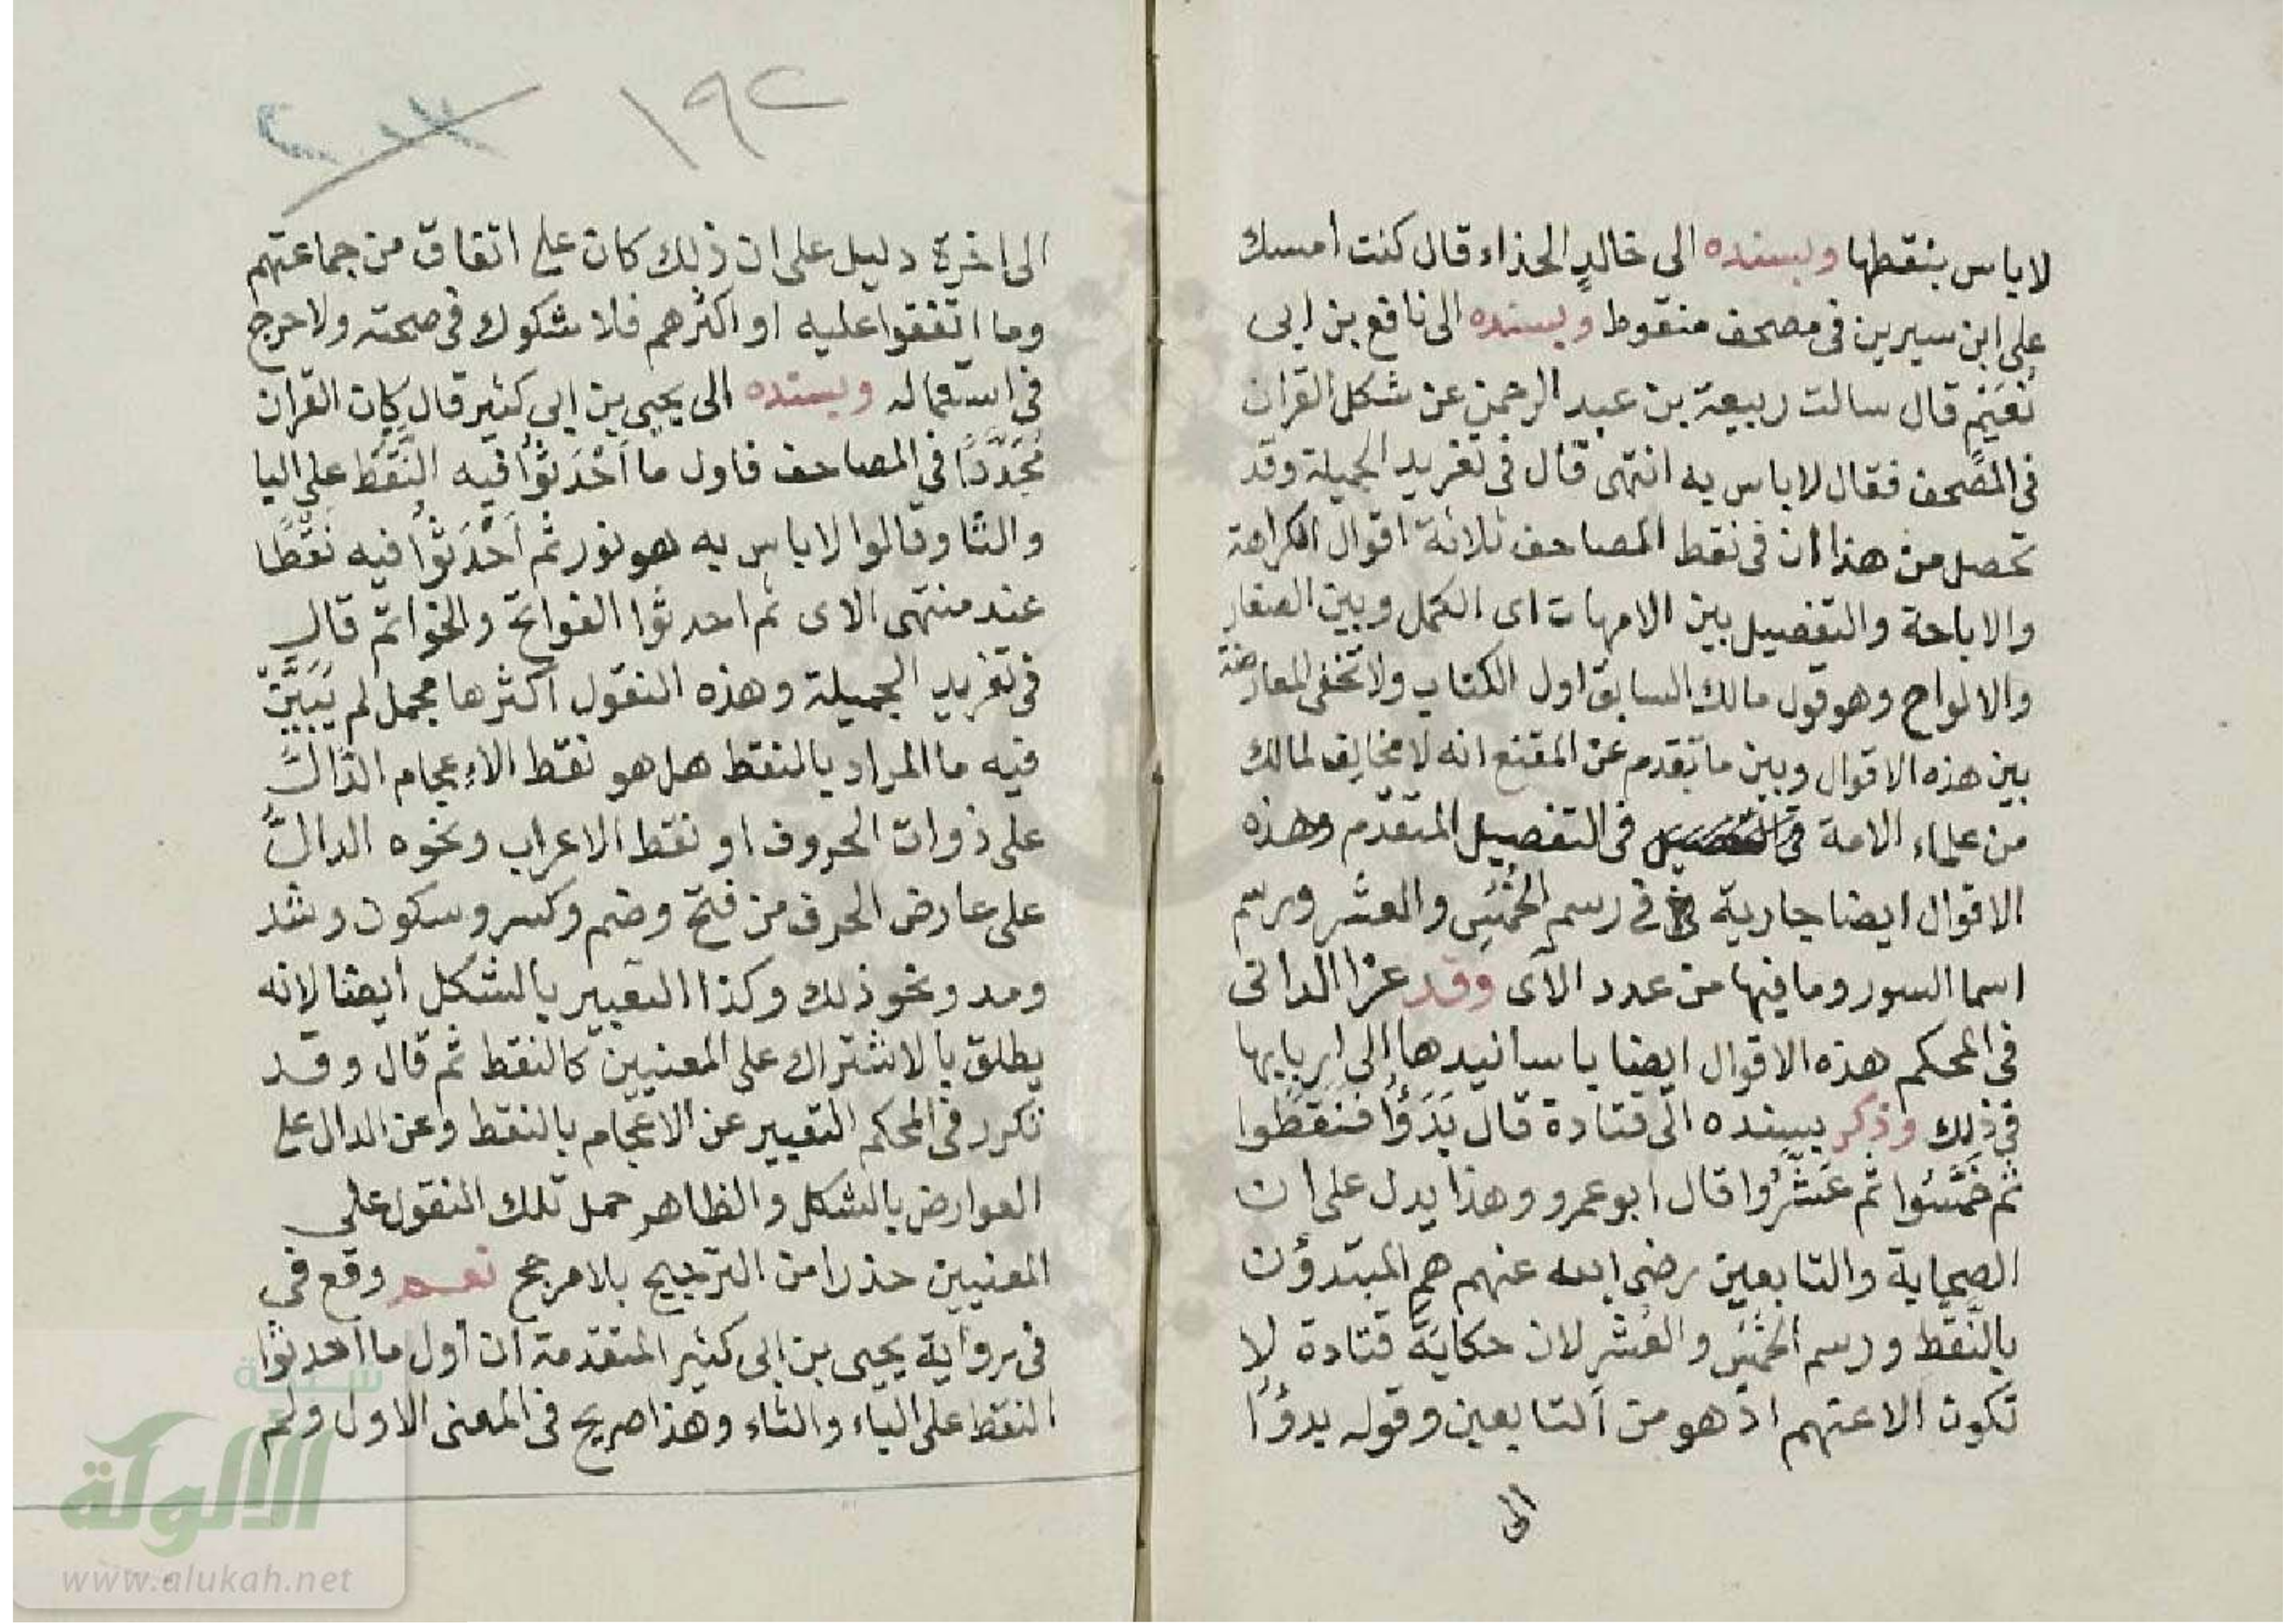 لاباس بنقطها وبسنده الى خالدٍ الحذاء قال كنت امسك
على ابن سيرين فى مصحف منقوط وبسنده الى نافع بن ابى
نُعَيْمٍ قال سالت ربيعة بن عبد الرحمن عن شكل القران
فى المصحف فقال لاباس به انتهى قال فى تغريد الجميلة وقد
تحصل من هذا ان فى نقط المصاحف ثلاثة اقوال الكراهة
والاباحة والتفصيل بين الامهات اى الكمل وبين الصغار
والالواح وهو قول مالك السابق اول الكتاب ولا تخفى المعارضة
بين هذه الاقوال وبين ما تقدم عن المقنع انه لا مخالف لمالك
من علماء الامة فى التفصيل المتقدم وهذه
الاقوال ايضا جارية فى رسم الخُمُسِ والعشر ورسم
اسما السور وما فيها من عدد الآى وقد عزا الدانى
فى المحكم هذه الاقوال ايضا باسانيدها إلى اربابها
فى ذلك وذكر بسنده الى قتادة قال بَدَؤُا فنَقَطُوا
ثم خَمَّسُوا ثم عَشَّرُوا قال ابو عمرو وهذا يدل على ان
الصحابة والتابعين رضى الله عنهم هم المبتدؤن
بالنَّقط ورسم الخُمُسِ والعُشْرِ لان حكاية قتادة لا
تكون الا عنهم اذ هو من التابعين وقوله بدؤا
الى
١٩٢
الى اخره دليل على ان ذلك كان على اتفاق من جماعتهم
وما اتفقوا عليه او اكثرهم فلا شكوك فى صحته ولا حرج
فى استعماله وبسنده الى يحيى بن ابى كثير قال كان القران
مُجَرَّدًا فى المصاحف فاول ما أَحْدَثُوا فيه النَّقْطَ على اليا
والتا وقالوا لاباس به هو نور ثم أَحْدَثُوا فيه نَقْطًا
عند منتهى الاى ثم احدثوا الفواتح والخواتم قال
فى تغريد الجميلة وهذه النقول اكثرها مجمل لم يُبَيَّنْ
فيه ما المراد بالنقط هل هو نقط الاعجام الدالّ
على ذوات الحروف او نقط الاعراب ونحوه الدالّ
على عارض الحرف من فتح وضم وكسر وسكون وشد
ومد ونحو ذلك وكذا التعبير بالشكل ايضا لانه
يطلق بالاشتراك على المعنيين كالنقط ثم قال وقد
تكرر فى المحكم التعبير عن الاعجام بالنقط وعن الدال على
العوارض بالشكل والظاهر حمل تلك النقول على
المعنيين حذرا من الترجيح بلا مرجح نعم وقع في
فى رواية يحيى بن ابى كثير المتقدمة ان أول ما احدثوا
النقط على الياء والتاء وهذا صريح فى المعنى الاول ولم
شبكة
الألوكة
www.alukah.net